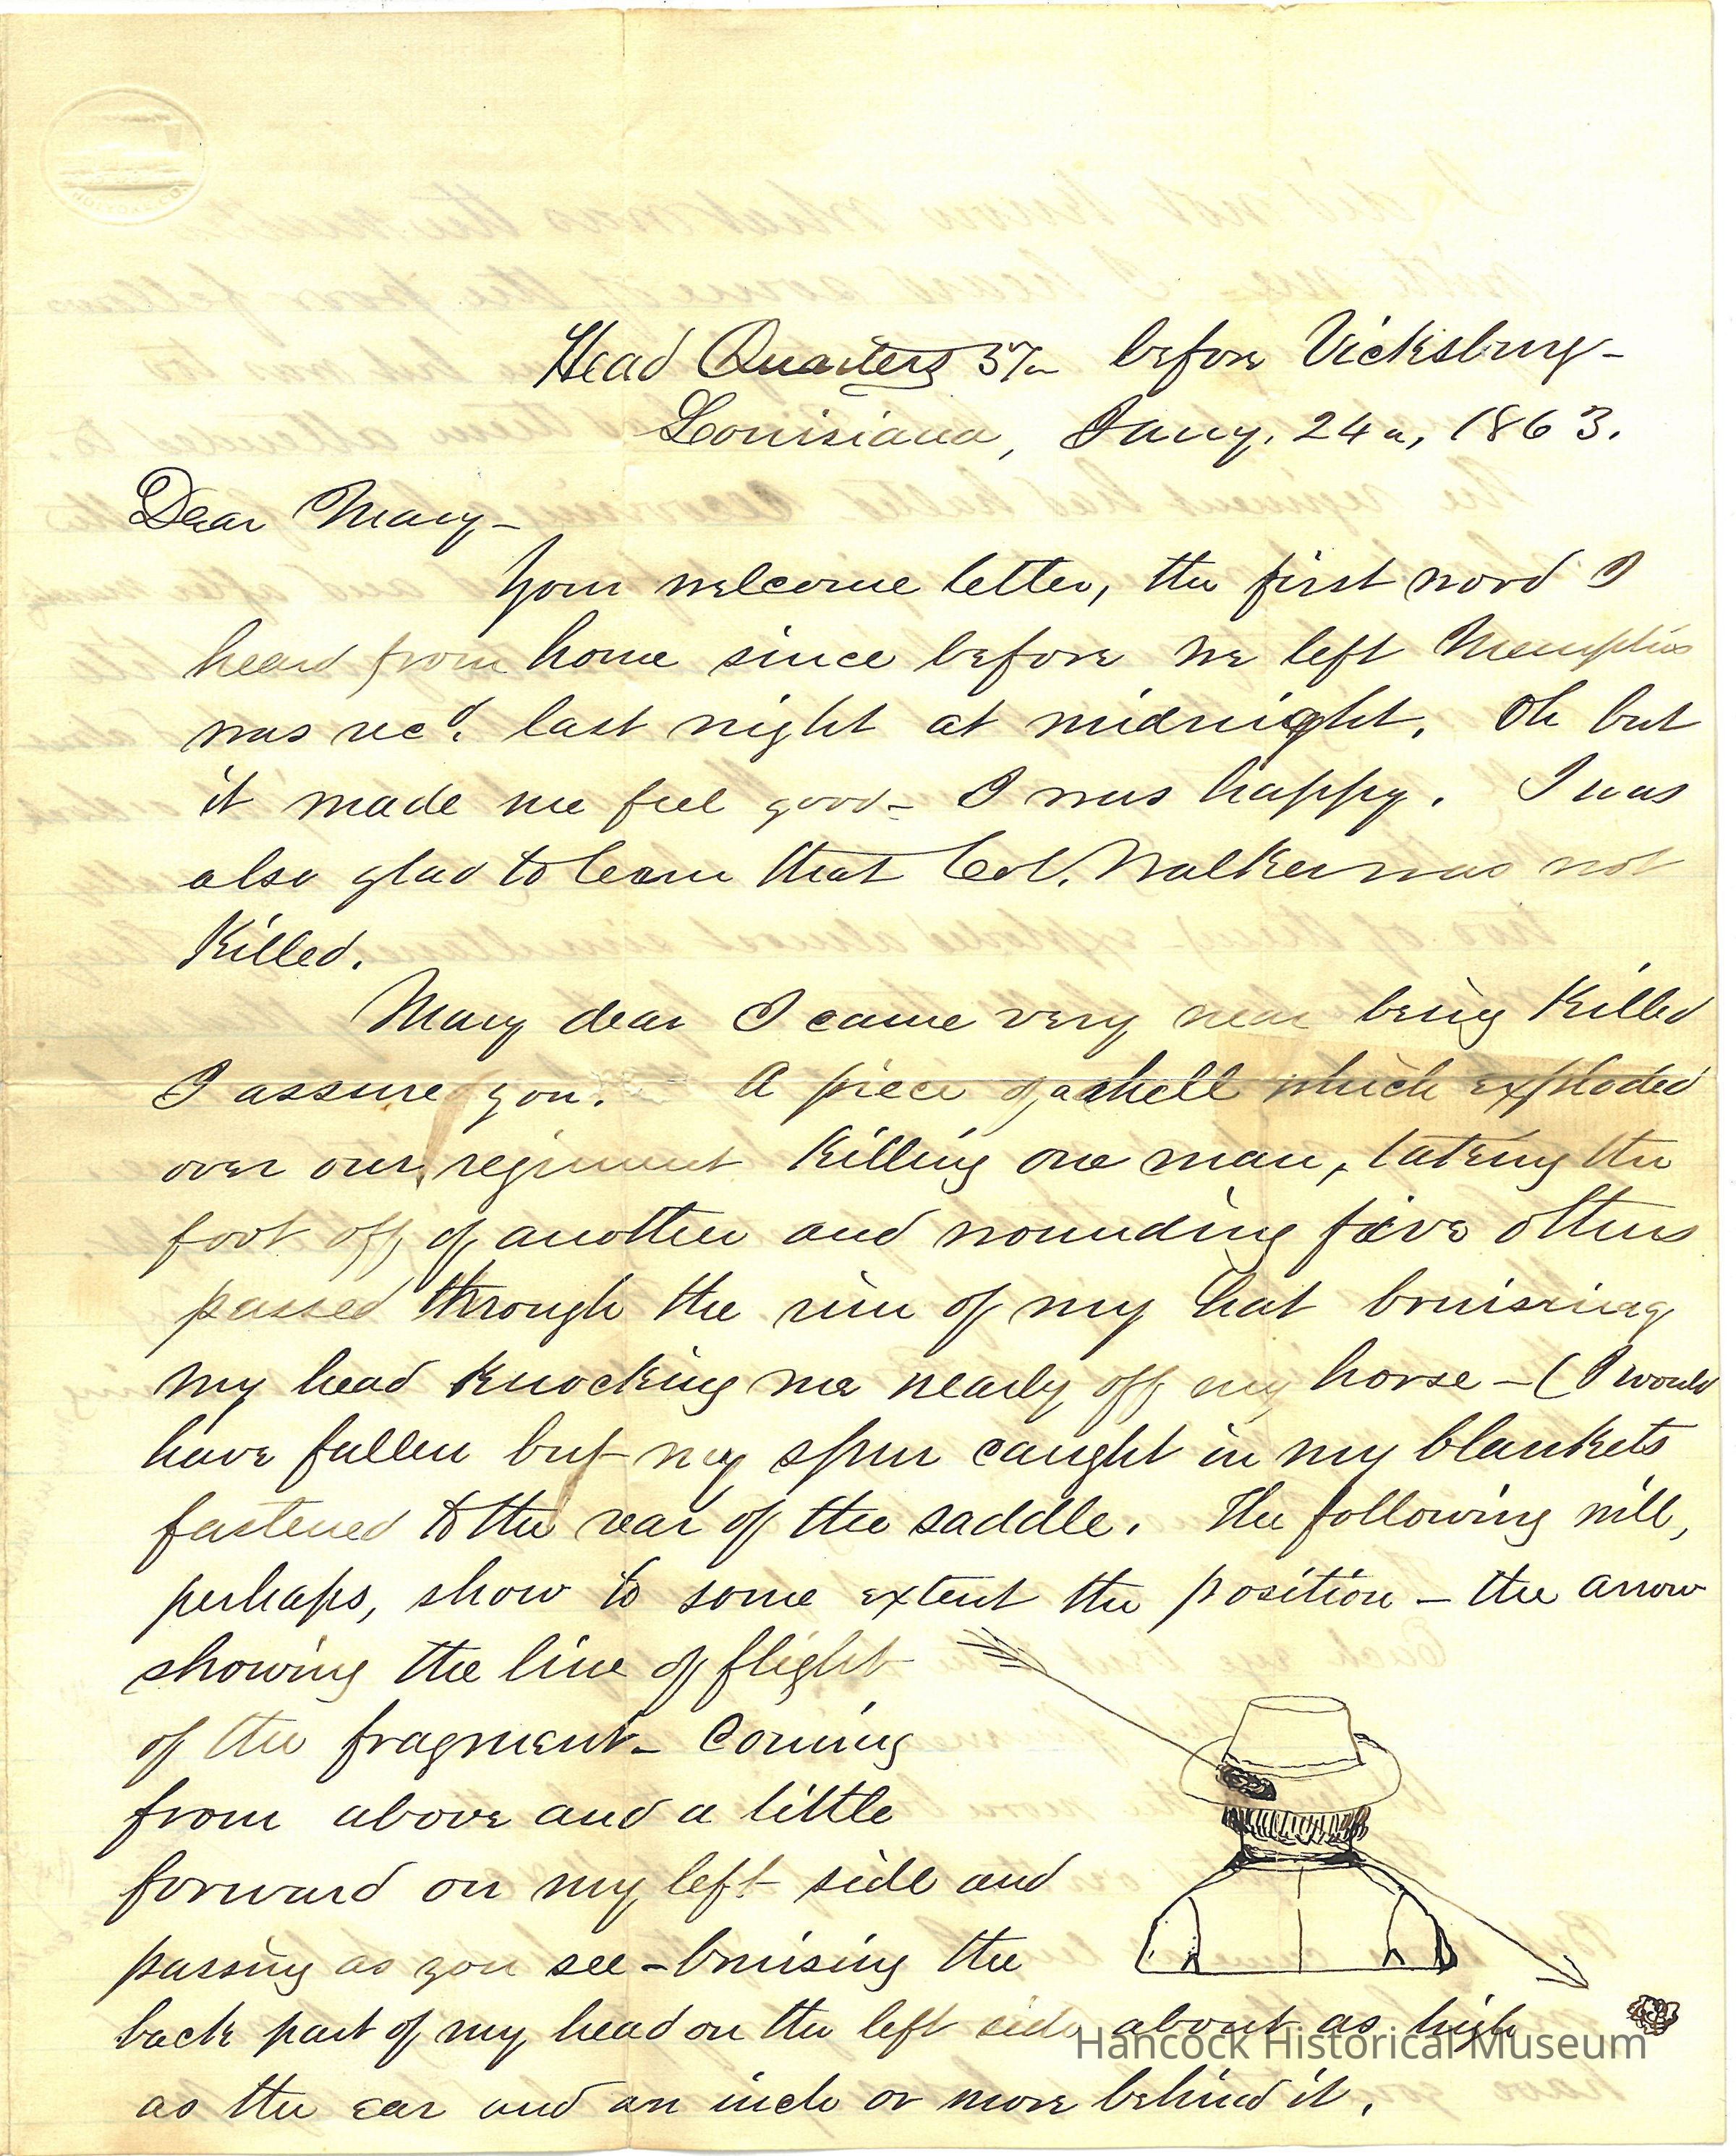 Head Quarters 57th before Vicksburg -
Louisiana, Jany. 24th, 1863.
Dear Mary -
Your welcome letter, the first word I
heard from home since before we left Memphis
was recd. last night at midnight. Oh but
it made me feel good - I was happy. I was
also glad to learn that Col. Walker was not
Killed.
Mary dear I came very near being Killed
I assure you. A piece of a shell which exploded
over our regiment Killing one man, taking the
foot off of another and wounding five others
passed through the rim of my hat bruising
my head Knocking me nearly off my horse - (I would
have fallen but my spur caught in my blankets
fastened to the rear of the saddle. The following will,
perhaps, show to some extent the position - the arrow
showing the line of flight
of the fragment - Coming
from above and a little
forward on my left side and
passing as you see - bruising the
back part of my head on the left side about as high
as the ear and an inch or more behind it.
Hancock Historical Museum